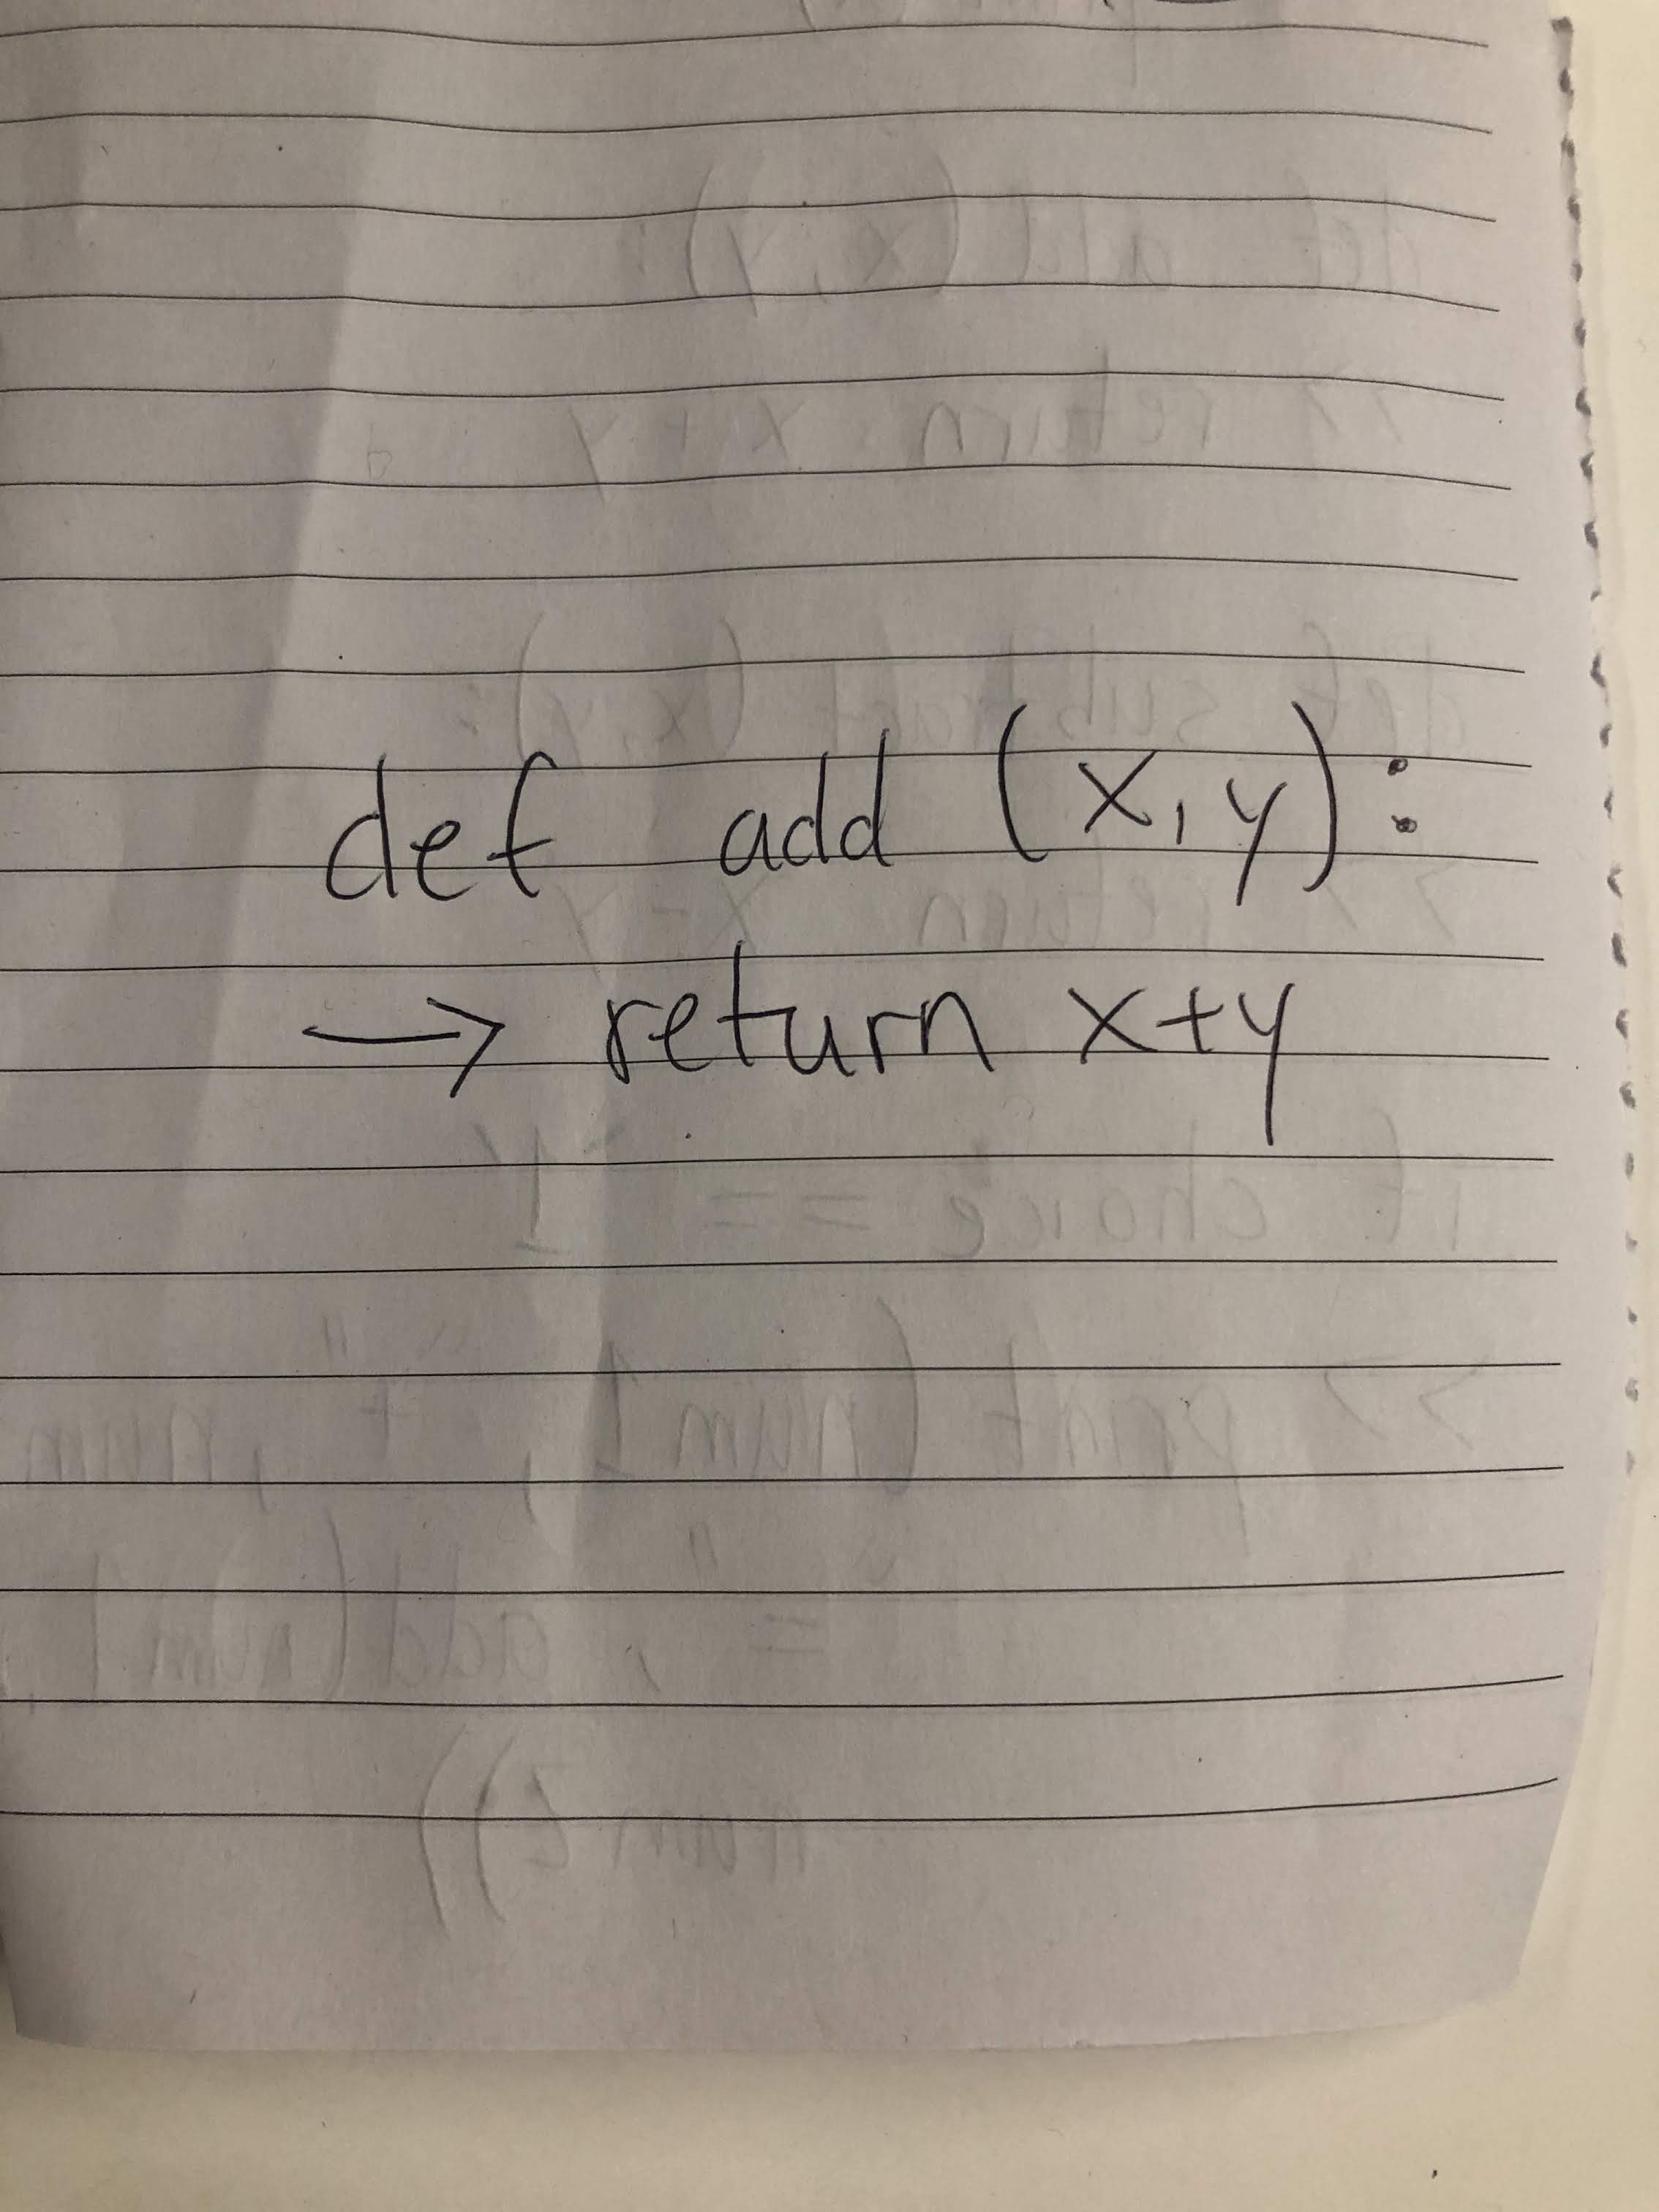 def add (x, y):
→ return x+y